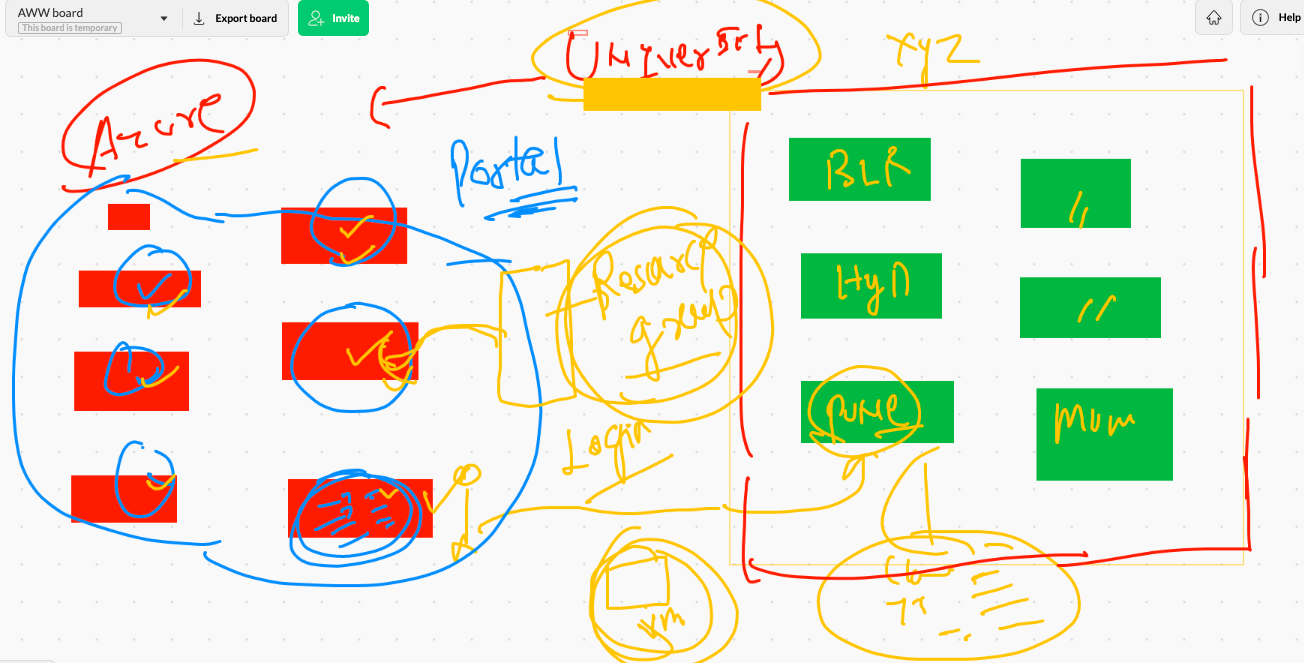 AWW board
This board is temporary
Export board
Invite
Help
University
xyz
Azure
Portal
BLR
Resource
group
HyD
PUNE
Mum
Login
VM